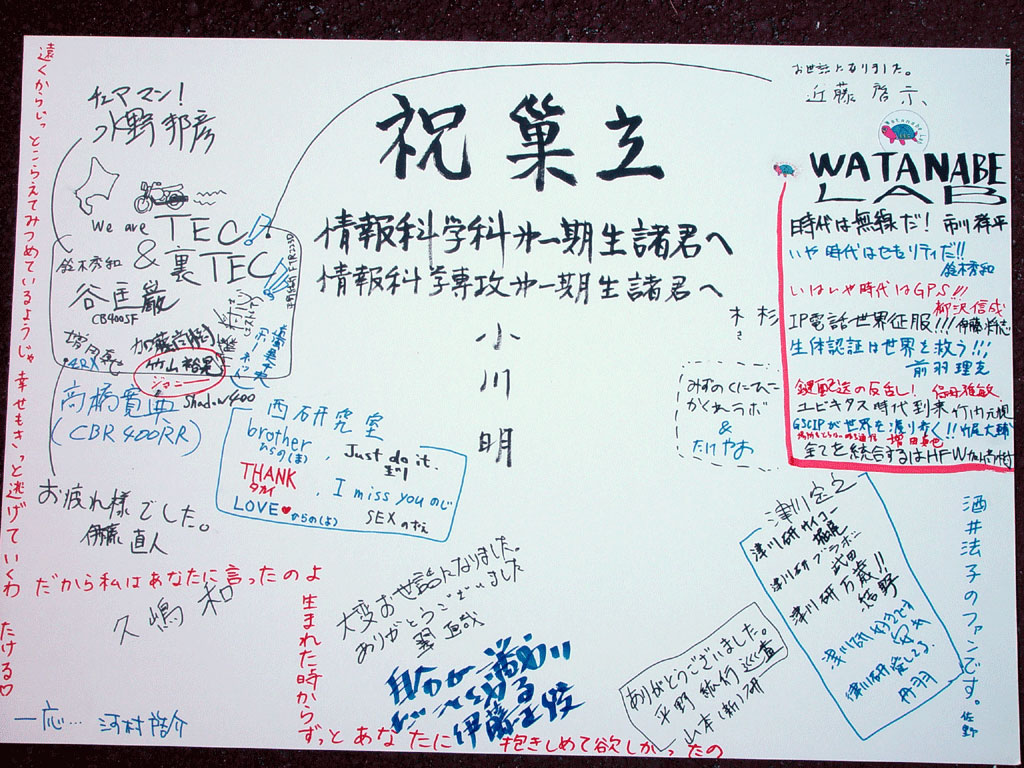 祝巣立
情報科学科第一期生諸君へ
情報科学専攻第一期生諸君へ
小川明
お世話になりました。
近藤啓示、
WATANABE
LAB
時代は無線だ! 市川祥平
いや時代はセキュリティだ!!
鈴木秀和
いはいや時代はGPS!!!
柳沢信成
IP電話世界征服!!!
生体認証は世界を救う!!!
前羽理克
鍵配送の反乱!
ユビキタス時代到来 竹内元規
GSCIPが世界を渡り歩く!!
増田真也
全てを統合するはHFW
チェアマン!
水野邦彦
We are TEC
& 裏TEC
鈴木秀和
谷庄巌
CB400SF
加藤
竹山裕晃
ジャニー
Shadow400
高橋寛典
(CBR400RR)
西研究室
brother
からの(ま)
Just do it.
THANK
タカイ
I miss you
LOVE♥からの(よ)
SEX
お疲れ様でした。
伊藤直人
木 杉
みずのくにひこ
かくれラボ
&
たけやま
津川定之
津川研サイコー
堀尾
津川研ブラボー
武田
津川研万歳!!
津川研好きです
津川研愛してる。
丹羽
酒井法子のファンです。
佐野
大変お世話になりました。
ありがとうございました
久嶋和
自分が
伊藤
ありがとうございました。
平野
山本(新)研
一応… 河村啓介
遠くからじっとこらえてみつめているようじゃ幸せもきっと逃げていくわ たける
だから私はあなたに言ったのよ
生まれた時から
ずっとあなたに抱きしめて欲しかったの